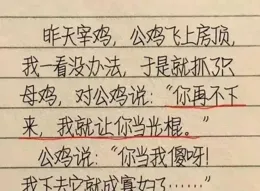 昨天宰鸡，公鸡飞上房顶，
我一看没办法，于是就抓了只
母鸡，对公鸡说：“你再不下
来，我就让你当光棍。”
公鸡说：“你当我傻呀！
我下去它就成寡妇了……”